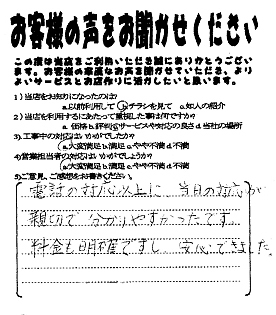 お客様の声をお聞かせください
この度は当店をご利用いただき誠にありがとうござい
ます。お客様の率直なお声を聞かせていただき、より
よいサービスとお店作りに活かしたいと思います。
1)当店をお知りになったのは?
a.以前利用して b.チラシを見て c.知人の紹介
2)当店を利用するにあたって重視した事は何ですか?
a.価格 b.評判 c.サービスや対応の良さ d.当社の場所
3)工事中の対応はいかがでしたか?
a.大変満足 b.満足 c.やや不満 d.不満
4)営業担当者の対応はいかがでしょうか?
a.大変満足 b.満足 c.やや不満 d.不満
5)ご意見、ご感想をお書きください。
電話の対応以上に、当日の対応が
親切で分かりやすかったです。
料金も明確ですし、安心できました。